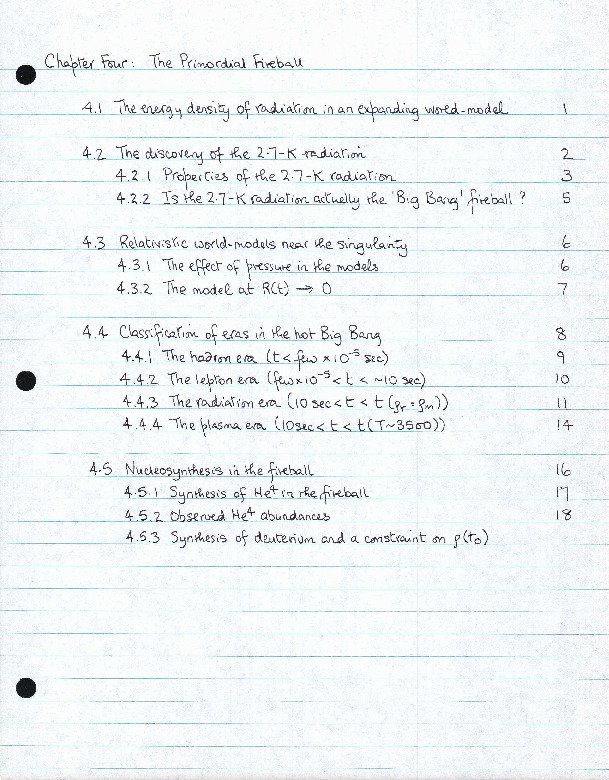 Chapter Four: The Primordial Fireball
4.1 The energy density of radiation in an expanding world-model 1
4.2 The discovery of the 2.7-K radiation 2
4.2.1 Properties of the 2.7-K radiation 3
4.2.2 Is the 2.7-K radiation actually the 'Big Bang' fireball? 5
4.3 Relativistic world-models near the singularity 6
4.3.1 The effect of pressure in the models 6
4.3.2 The model at R(t) → 0 7
4.4 Classification of eras in the hot Big Bang 8
4.4.1 The hadron era (t < few × 10⁻⁵ sec) 9
4.4.2 The lepton era (few × 10⁻⁵ < t < ~10 sec) 10
4.4.3 The radiation era (10 sec < t < t(ρr = ρm)) 11
4.4.4 The plasma era (10 sec < t < t(T~3500)) 14
4.5 Nucleosynthesis in the fireball 16
4.5.1 Synthesis of He⁴ in the fireball 17
4.5.2 Observed He⁴ abundances 18
4.5.3 Synthesis of deuterium and a constraint on ρ(t₀)